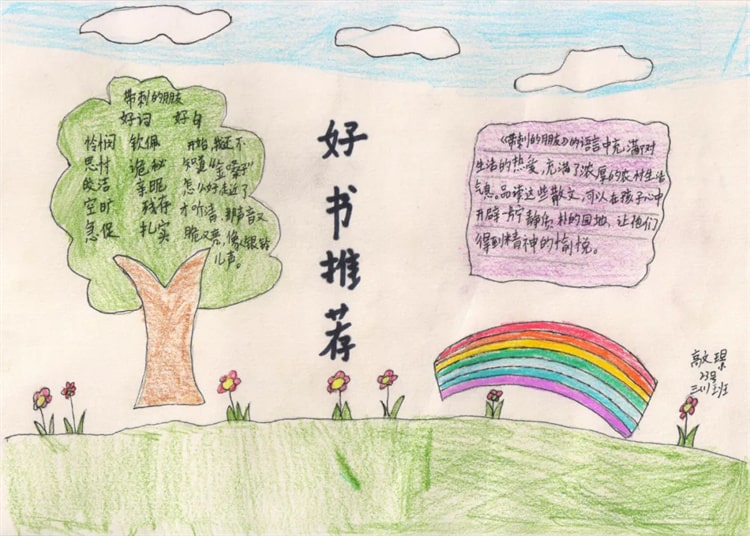 带刺的朋友
好词 好句
怜悯 钦佩
思忖 诡秘
皎洁 亲昵
空旷 残存
急促 扎实
开始,我还不
知道“金嗓子”
怎么好,走近了
才听清,那声音又
脆又亮,像银铃
儿声。
好书推荐
《带刺的朋友》的语言中充满了对
生活的热爱,充满了浓厚的农村生活
气息。品读这些散文,可以在孩子心中
开辟一方宁静质朴的园地,让他们
得到精神的愉悦。
高文璟
23号
三班